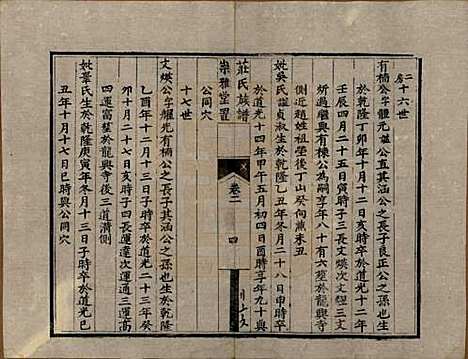 二房
十六世
有楠公字體元諡公直其涵公之長子良正公之孫也生
於乾隆丁卯年十月十二日亥時卒於道光十二年
壬辰四月二十五日寅時子三長文煐次文鋞三文
炘過繼與有棟公為嗣享年八十有六塟於龍興寺
側近趙姓祖塋後丁山癸向歲未丑
妣吳氏諡貞淑生於乾隆乙丑年冬月二十八日申時卒
於道光十四年甲午五月初四日酉時享年九十與
公同穴
十七世
莊氏族譜
崇雅堂置
卷二
四
文煐公字耀先有楠公之長子其涵公之孫也生於乾隆
乙酉年十二月十三日子時卒於道光二十三年癸
卯十月二十七日亥時子四長運達次運通三運高
四運著塟於龍興寺後三道溝側
妣葦氏生於乾隆庚寅年冬月十三日子時卒於道光已
丑年十月十七日巳時與公同穴